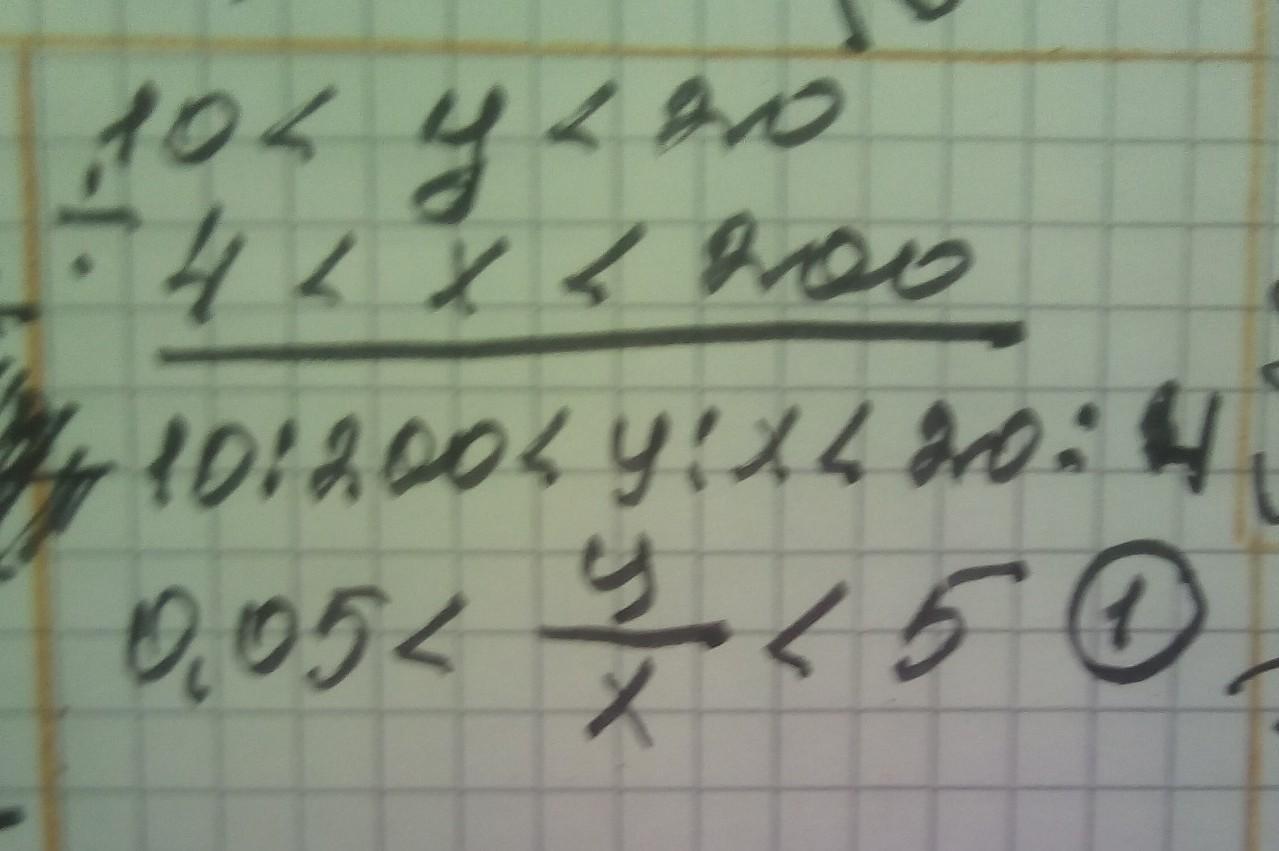 10 < y < 20
÷
4 < x < 200
10:200 < y:x < 20:4
0,05 < y/x < 5 ①